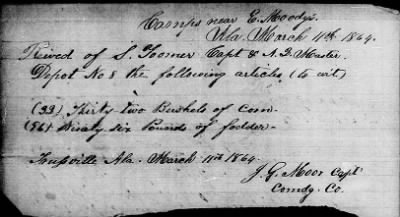 Camps near E. Moodys.
Ala. March 11th 1864.
Recived of S. Toomer Capt & A. Q. Master.
Depot No 8 the following articles (to wit)
(33) Thirty two Bushels of corn
(96) Ninety six Pounds of fodder
Trussville Ala. March 11th 1864.
J. G. Moor Capt
Comdg. Co.